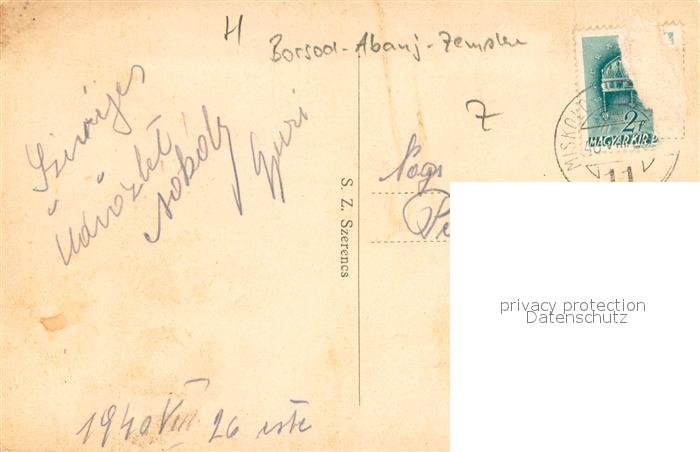 H
Borsod-Abauj-Zemplen
Z
Szívélyes
Üdvözlet
Gyuri
Nagy
S. Z. Szerencs
2f
MAGYAR KIR. P
MISKOLC
11
privacy protection
Datenschutz
1940 VIII 26 este